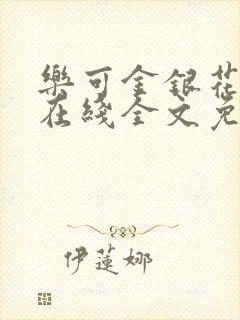 樂可金銀花
在綫全文免
伊蓮娜